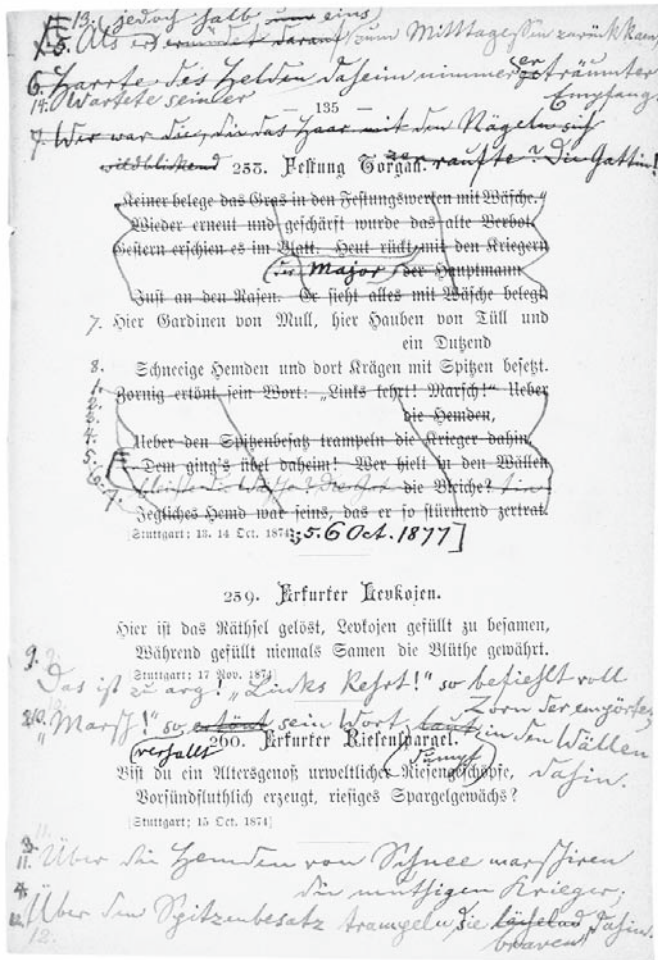 13. (jedoch halb und eins)
5. Als er ermüdet darauf zum Mittagessen zurück kam,
6. Harrte des Helden daheim nimmer erträumter
Empfang.
14. Wartete seiner
— 135 —
7. Wer war die, die das Haar mit den Nägeln sich
wildblickend
zerraufte? Die Gattin!
258. Festung Torgau.
„Keiner belege das Gras in den Festungswerken mit Wäsche.“
Wieder erneut und geschärft wurde das alte Verbot.
Gestern erschien es im Blatt. Heut rückt mit den Kriegern
(der Major) der Hauptmann
Just an den Rasen. Er sieht alles mit Wäsche belegt.
7. Hier Gardinen von Mull, hier Hauben von Tüll und
ein Dutzend
8. Schneeige Hemden und dort Krägen mit Spitzen besetzt.
1. Zornig ertönt sein Wort: „Links kehrt! Marsch!“ Ueber
2.
3. die Hemden,
4. Ueber den Spitzenbesatz trampeln die Krieger dahin.
5. Dem ging's übel daheim! Wer hielt in den Wällen
6. die Bleiche?
7. Jegliches Hemd war seins, das er so stürmend zertrat.
[Stuttgart; 13. 14 Oct. 1874; 5. 6 Oct. 1877]
259. Erfurter Levkojen.
Hier ist das Räthsel gelöst, Levkojen gefüllt zu besamen,
Während gefüllt niemals Samen die Blüthe gewährt.
[Stuttgart; 17 Nov. 1874]
9. Das ist zu arg! „Links kehrt!“ so befiehlt voll
Zorn der empörte,
10. „Marsch!“ so ertönt sein Wort laut in den Wällen
verhallt
dumpf
dahin.
260. Erfurter Riesenspargel.
Bist du ein Altersgenoß urweltlicher Riesengeschöpfe,
Vorsündfluthlich erzeugt, riesiges Spargelgewächs?
[Stuttgart; 15 Oct. 1874]
11. Über die Hemden von Schnee marschiren
die muthigen Krieger;
12. Über den Spitzenbesatz trampeln die lächelnd dahin.
braven
12.